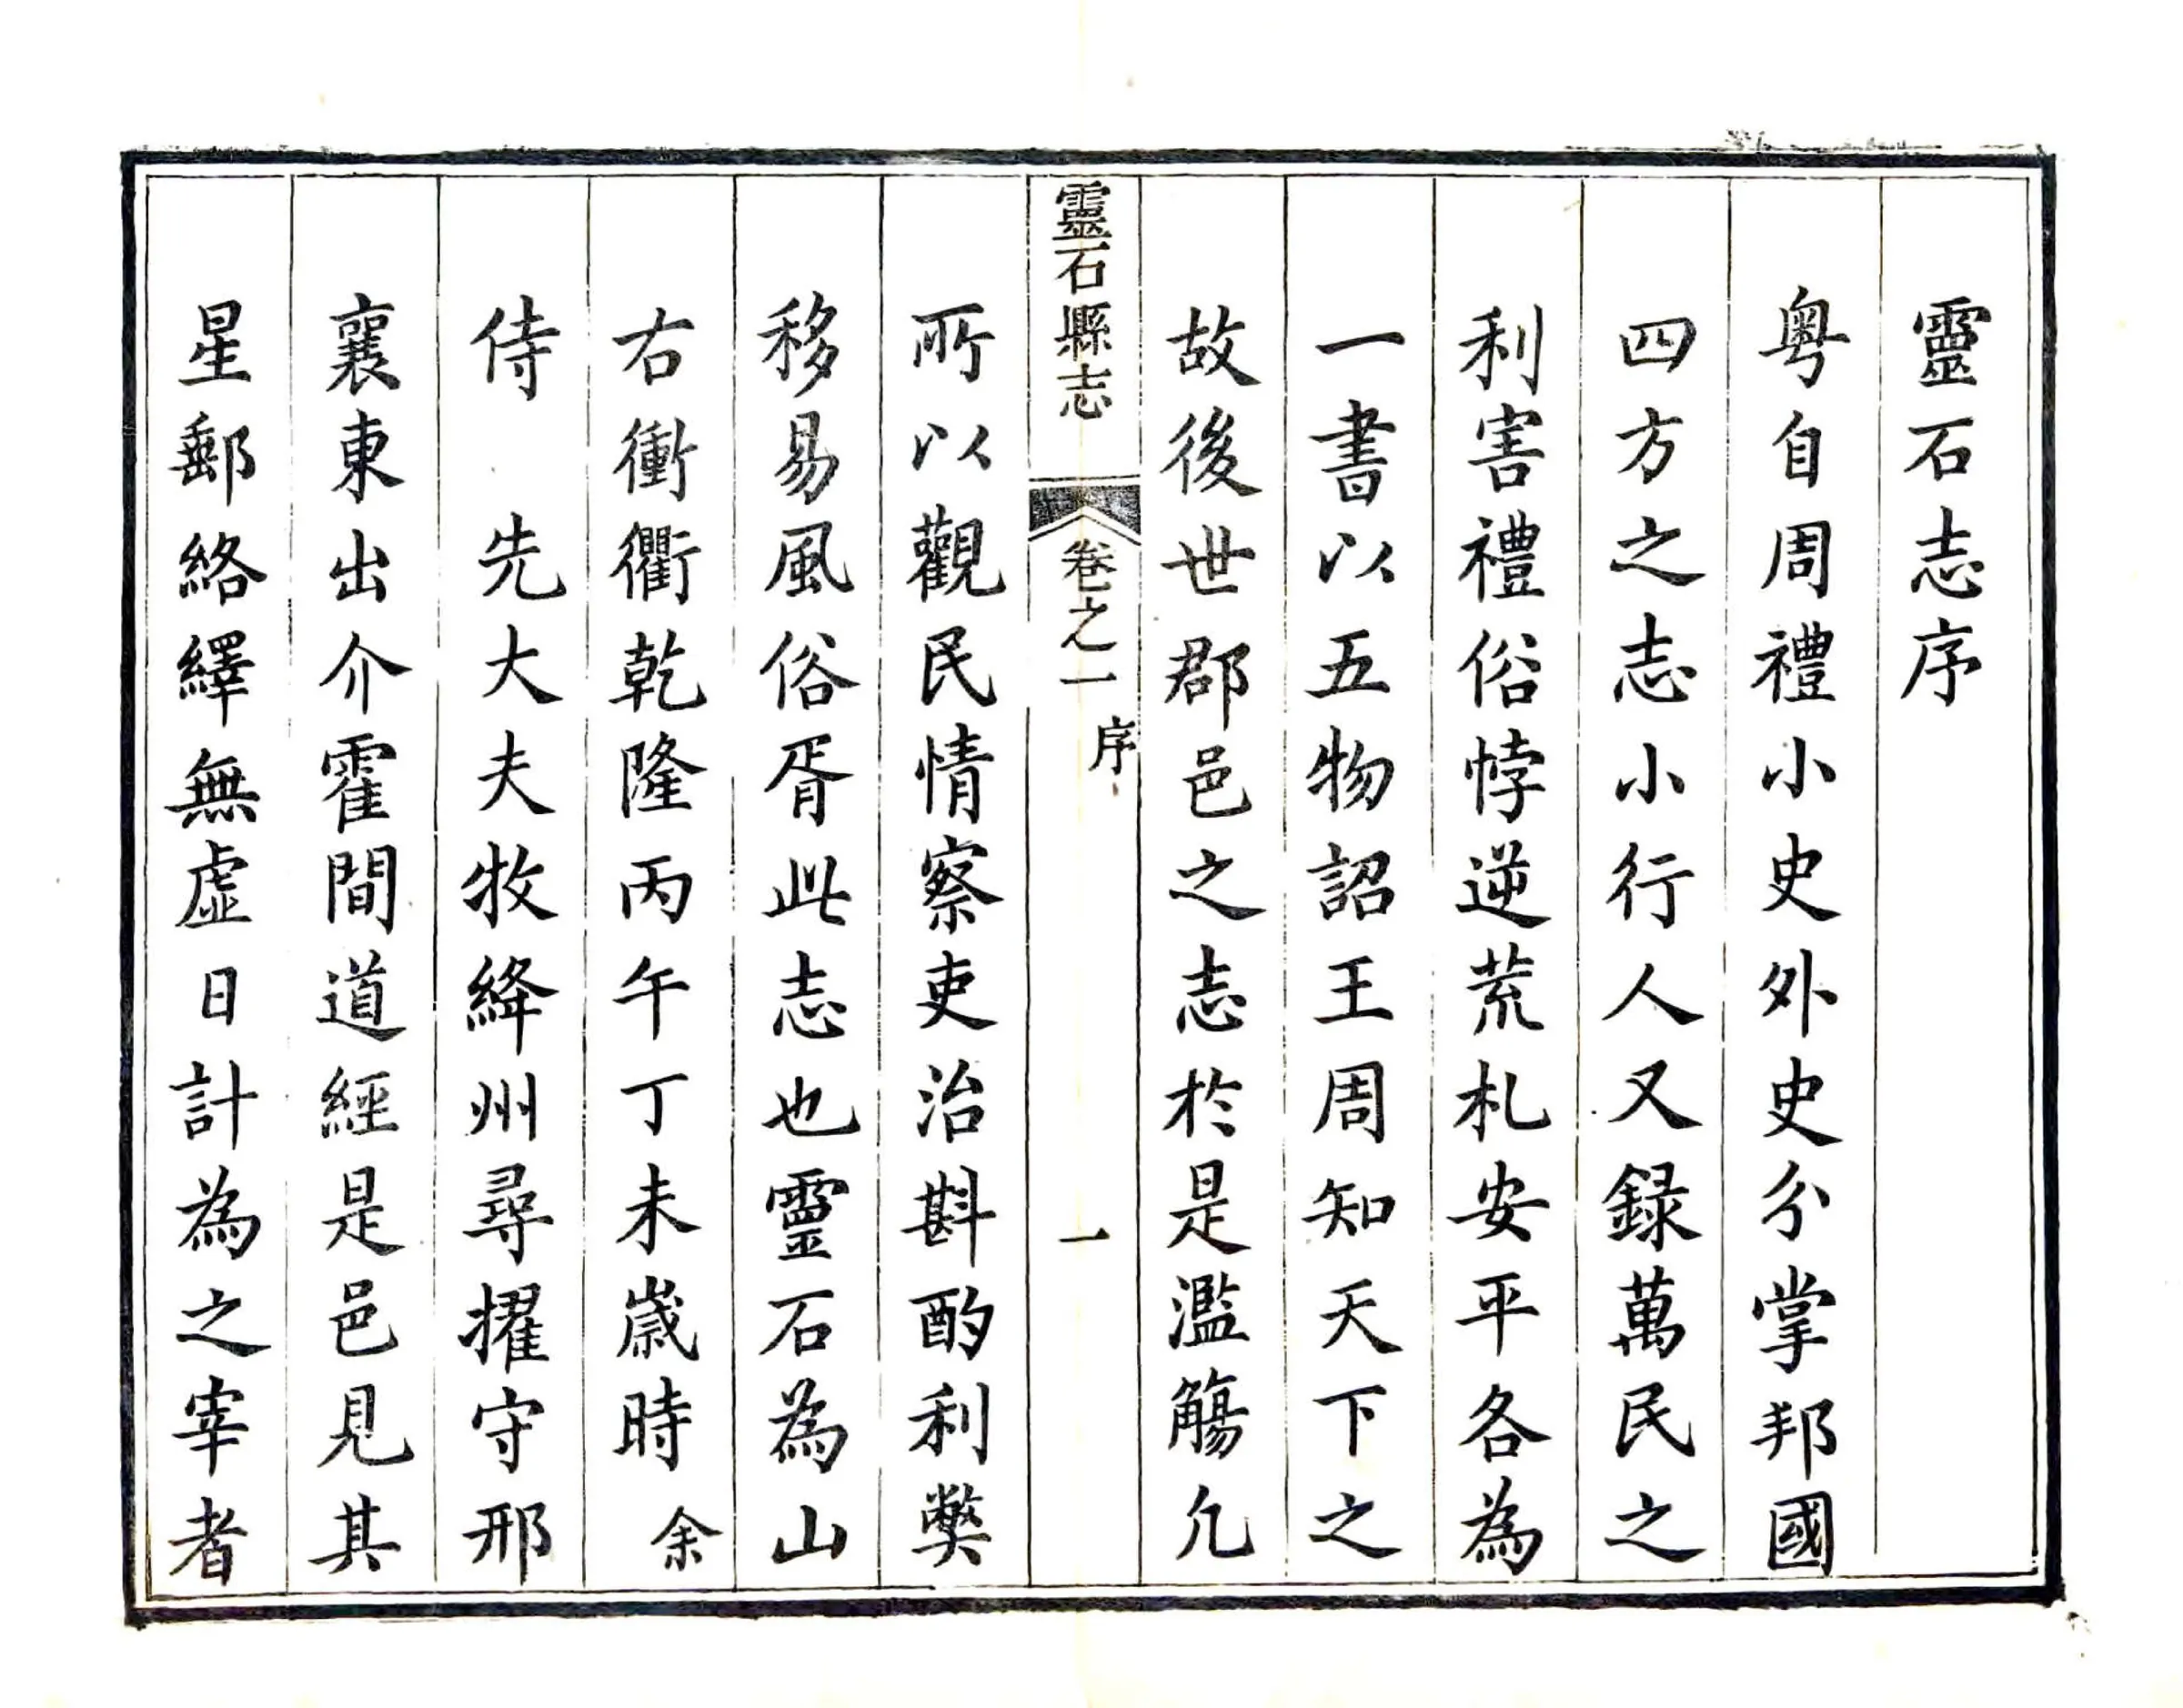 靈石志序
粤自周禮小史外史分掌邦國
四方之志小行人又録萬民之
利害禮俗悖逆荒札安平各為
一書以五物詔王周知天下之
故後世郡邑之志於是濫觴凡
靈石縣志
卷之一
序
一
所以觀民情察吏治斟酌利弊
移易風俗胥此志也靈石為山
右衝衢乾隆丙午丁未歲時余
侍先大夫牧絳州尋擢守邢
襄東出介霍間道經是邑見其
星郵絡繹無虛日計為之宰者